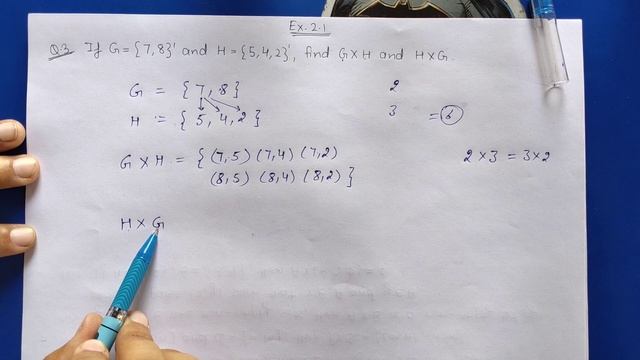 Ex. 2.1
Q.3 If G = {7,8} and H = {5,4,2}, find G×H and H×G.
G = {7, 8} 2
H = {5, 4, 2} 3 = 6
G × H = { (7,5) (7,4) (7,2) 2 × 3 = 3 × 2
(8,5) (8,4) (8,2) }
H × G